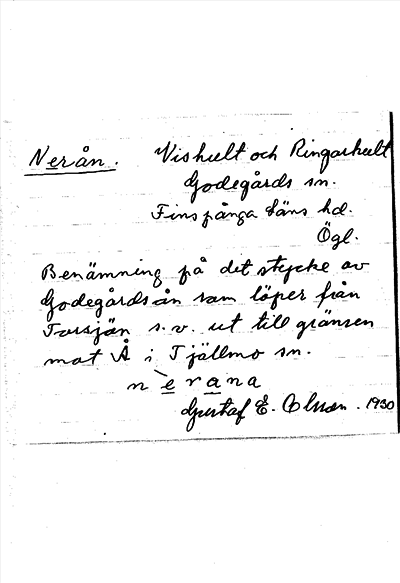 Nerån. Vishult och Ringarhult
Godegårds sn.
Finspånga läns hd.
Ögl.
Benämning på det stycke av
Godegårdsån som löper från
Torsjön s.v. ut till gränsen
mot Å i Tjällmo sn.
n e r a n a
Gustaf E. Olsson. 1930